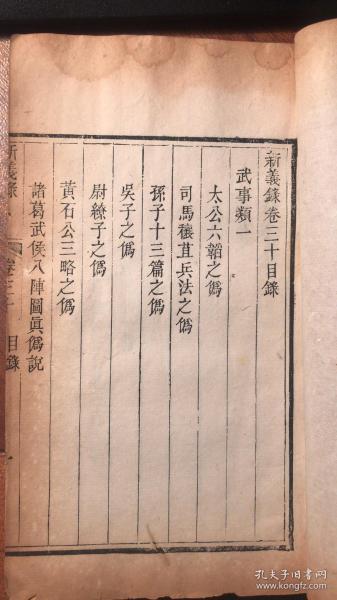 新義錄卷三十目錄
武事類一
太公六韜之僞
司馬穰苴兵法之僞
孫子十三篇之僞
吳子之僞
尉繚子之僞
黃石公三略之僞
諸葛武侯八陣圖眞僞說
新義錄 卷三十 目錄
孔夫子旧书网
www.kongfz.com